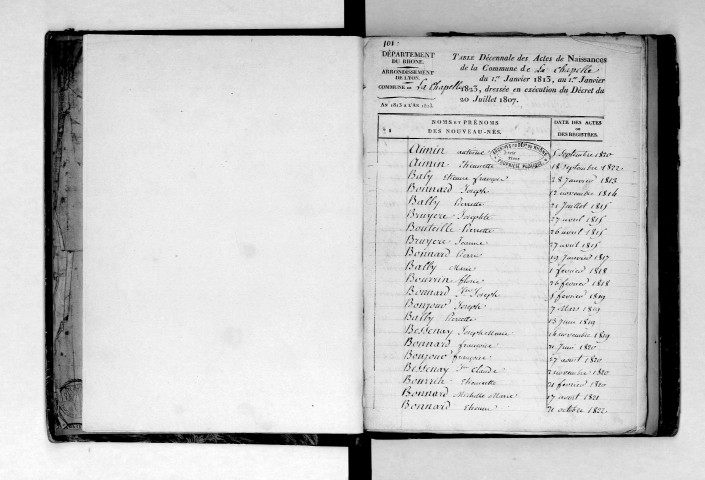 101
DÉPARTEMENT
DU RHONE.
ARRONDISSEMENT
DE LYON.
COMMUNE DE La Chapelle
An 1813 à l'An 1823.
Table Décennale des Actes de Naissances
de la Commune de La Chapelle
du 1.er Janvier 1813, au 1.er Janvier
1823, dressée en exécution du Décret du
20 Juillet 1807.
NOMS ET PRÉNOMS
DES NOUVEAU-NÉS.
DATE DES ACTES
DES REGISTRES.
Aimin antoine 5 Septembre 1820
Aimin Etiennette 18 Septembre 1822
Baly Etienne françois 28 Janvier 1813
Bonnard Joseph 12 novembre 1814
Bally Pierrette 21 Juillet 1815
Bruyere Josephte 27 avril 1815
Bouteille Pierrette 26 avril 1815
Bruyere Jeanne 27 avril 1815
Bonnard Pierre 19 Janvier 1817
Bally Marie 1 fevrier 1818
Bourrin 26 fevrier 1818
Bonnard Joseph 3 fevrier 1819
Bonjour Joseph 7 Mars 1819
Bally Pierrette 13 Juin 1819
Bessenay Joseph Marie 16 novembre 1819
Bonnard françoise 21 Juin 1820
Bonjour françoise 27 aout 1820
Bessenay Claude 2 novembre 1820
Bourrin Etiennette 21 fevrier 1820
Bonnard Michelle Marie 17 aout 1821
Bonnard Etienne 21 octobre 1822